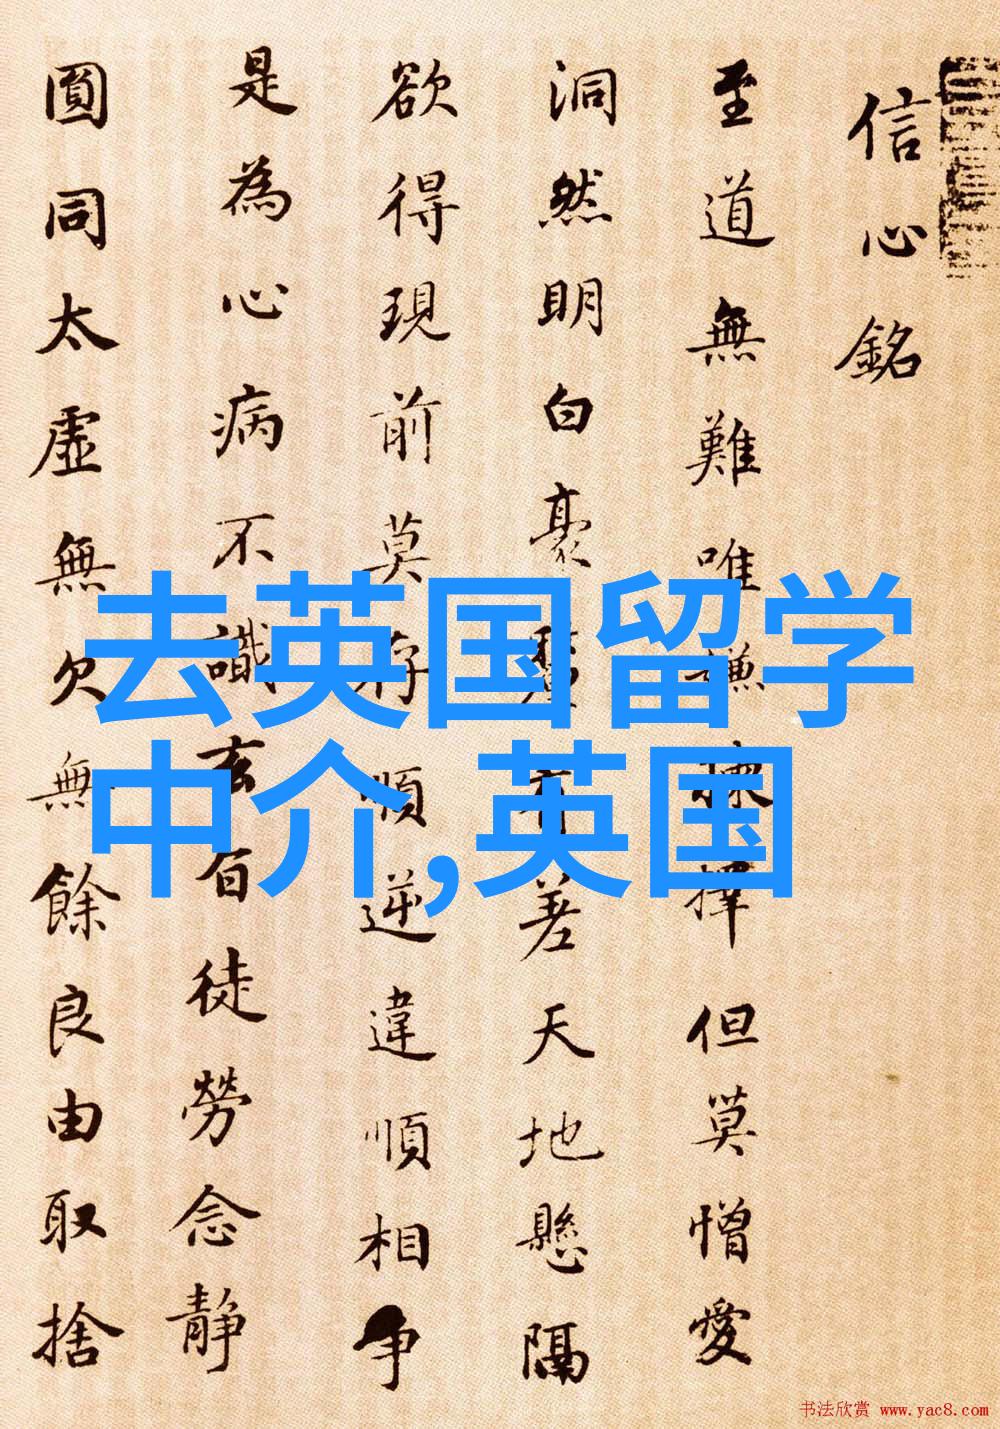 信心銘
至道無難唯嫌揀擇但莫憎愛
洞然明白豪釐有差天地懸隔
欲得現前莫存順逆違順相争
是為心病不識玄旨徒勞念静
圓同太虛無欠無餘良由取捨
去英国留学
中介,英国
书法欣赏 www.yac8.com